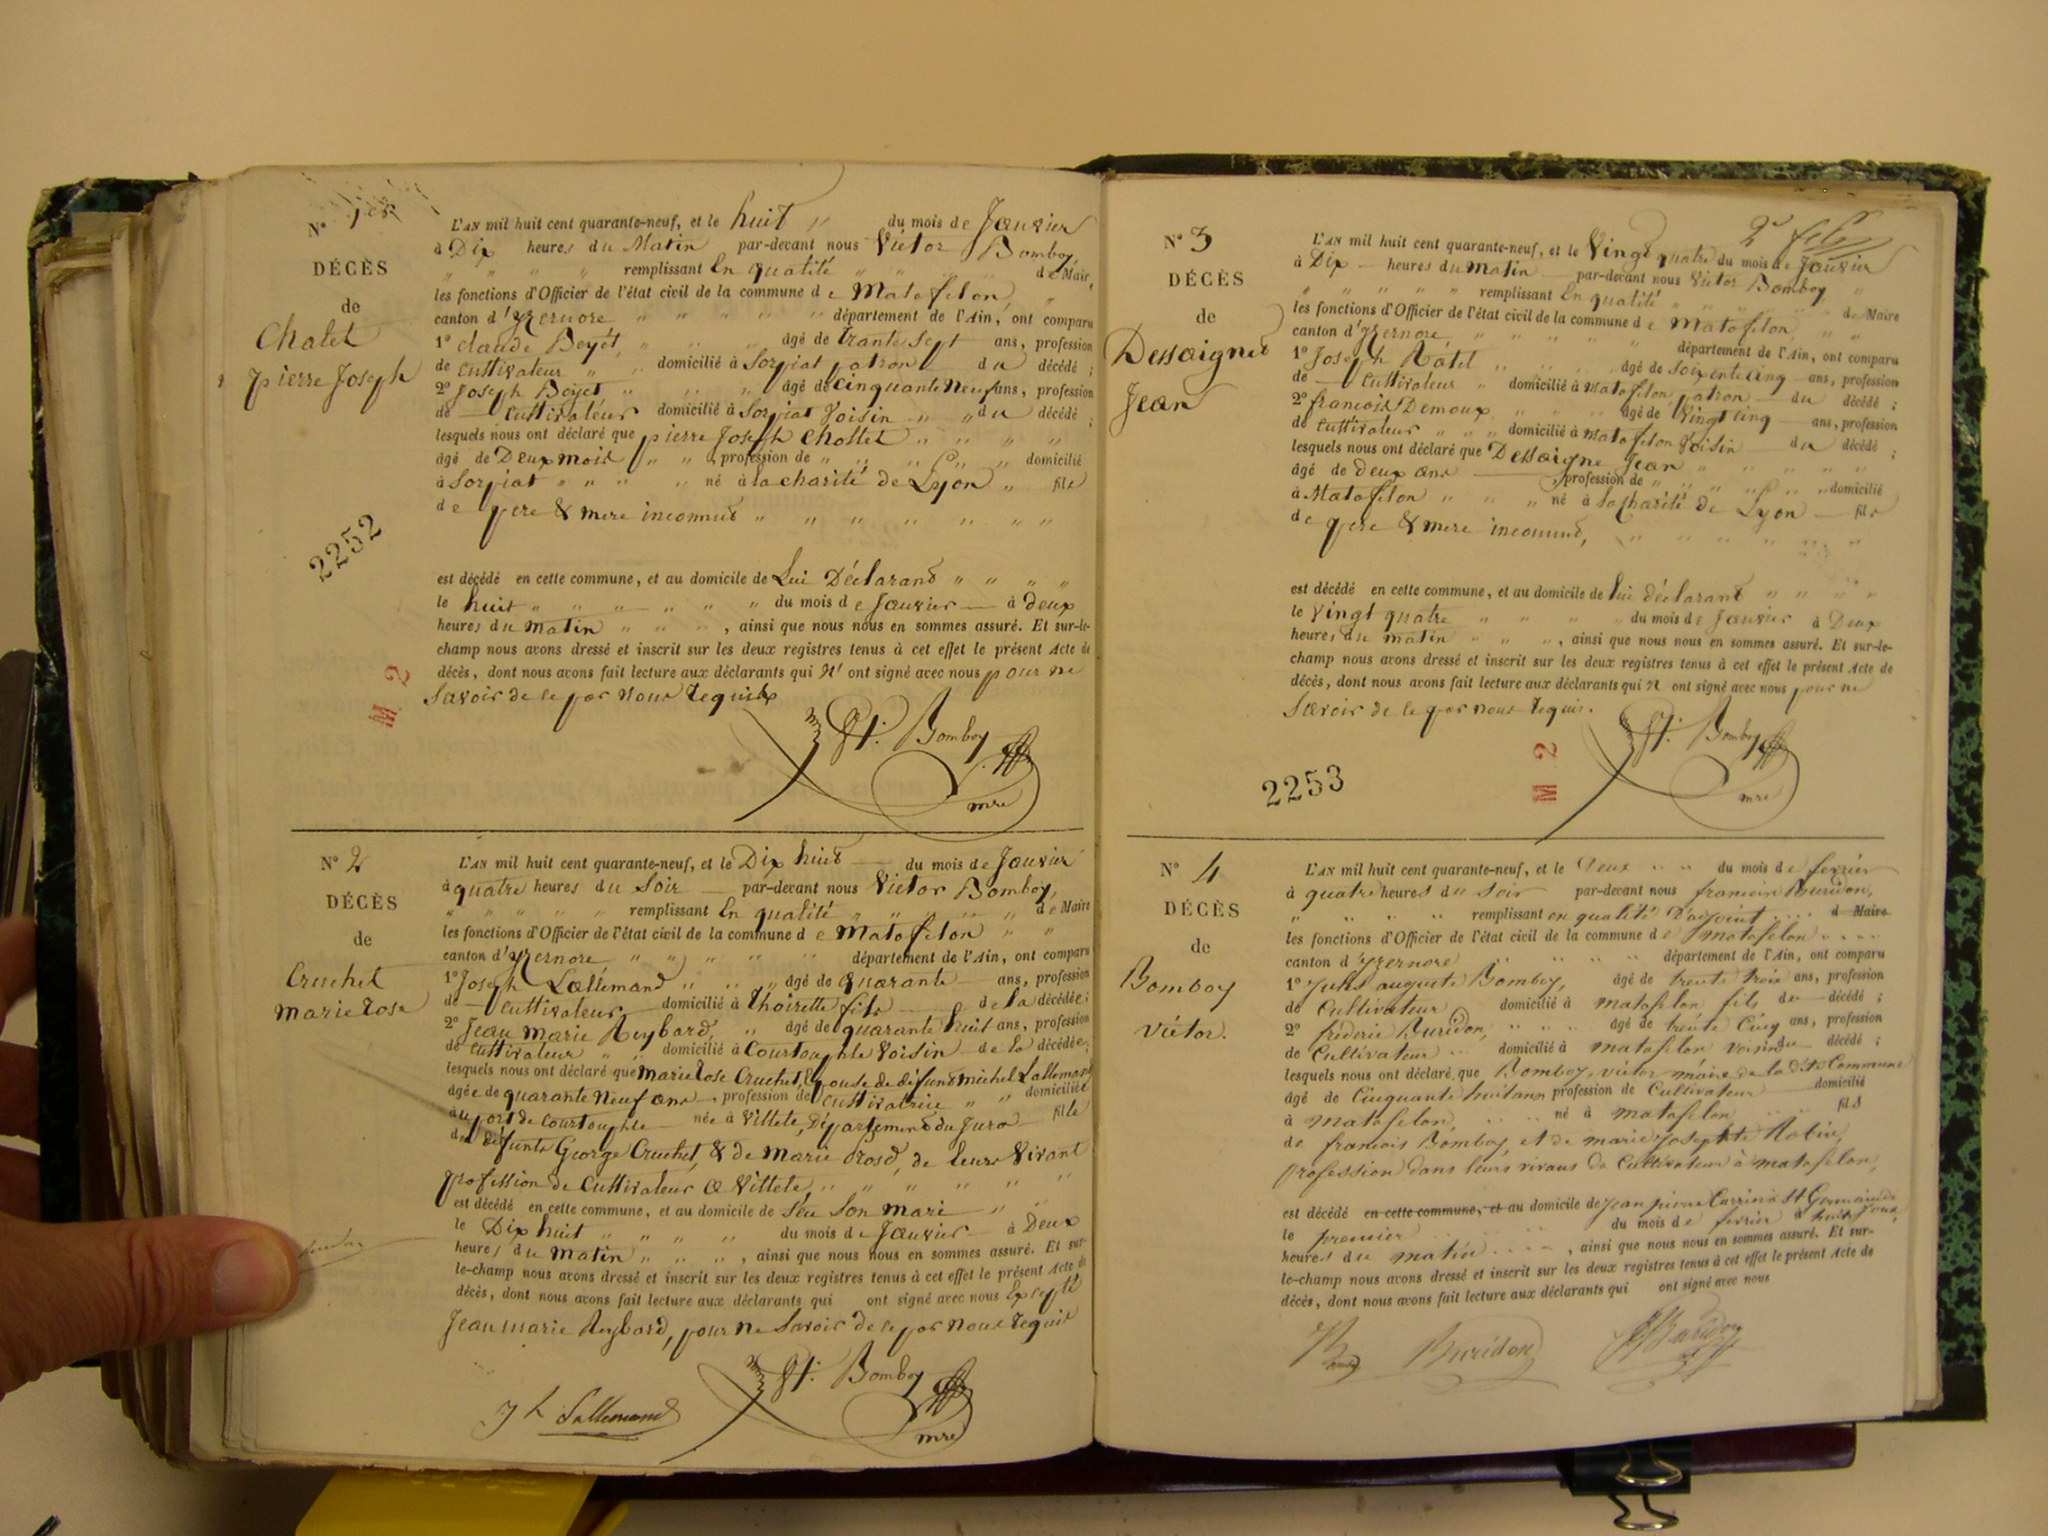 N° 1er
DÉCÈS
de
Chalet
pierre Joseph
L'AN mil huit cent quarante-neuf, et le huit " du mois de Janvier
à Dix heures du Matin par-devant nous Victor Bomboy,
" " " " remplissant En qualité " " " " de Maire,
les fonctions d'Officier de l'état civil de la commune de Matafelon, "
canton d'Yzernore " " " " " département de l'Ain, ont comparu
1° claude Beyet, " " " âgé de trante sept ans, profession
de cultivateur " " domicilié à Sorpiat patron du décédé ;
2° Joseph Beyet " " " " âgé de cinquante Neuf ans, profession
de — Cultivateur domicilié à Sorpiat Voisin " " du décédé ;
lesquels nous ont déclaré que pierre Joseph Chollet " " " "
âgé de Deux mois " " , profession de " " " " " domicilié
à Sorpiat " " " " né à la charité de Lyon " fils
de pere & mere inconnus " " " " " " "
2252
est décédé en cette commune, et au domicile de Lui Déclarant " " " "
le huit " " " " " " du mois de Janvier — à deux
heures du matin " " " , ainsi que nous nous en sommes assuré. Et sur-le-
champ nous avons dressé et inscrit sur les deux registres tenus à cet effet le présent Acte de
décès, dont nous avons fait lecture aux déclarants qui N' ont signé avec nous pour ne
Savoir de ce par Nous Requis
M 2
Bomboy
mre
N° 2
DÉCÈS
de
Cruchet
marie rose
L'AN mil huit cent quarante-neuf, et le Dix huit — du mois de Janvier
à quatre heures du Soir — par-devant nous Victor Bomboy,
" " " " " remplissant En qualité " " " " de Maire
les fonctions d'Officier de l'état civil de la commune de Matafelon " "
canton d'Yzernore " " " " " département de l'Ain, ont comparu
1° Joseph Lallemand " " " âgé de quarante — ans, profession
de — Cultivateur domicilié à Thoirette fils — de la décédée ;
2° Jean marie Reybard, " âgé de quarante huit ans, profession
de cultivateur " " domicilié à Courtouphle Voisin — de la décédée ;
lesquels nous ont déclaré que marie rose Cruchet, Epouse de défunt michel Lallemand
âgée de quarante Neuf ans , profession de Cultivatrice " " domiciliée
au port de Courtouphle — née à Villete, Département du Jura — fille
de défunts George Cruchet, & de marie , de leurs Vivant
profession de Cultivateur a Villete, " " " " " "
est décédé en cette commune, et au domicile de feu Son mari " "
le Dix huit " " " " du mois de Janvier — à Deux
heures du Matin " " " " , ainsi que nous nous en sommes assuré. Et sur-
le-champ nous avons dressé et inscrit sur les deux registres tenus à cet effet le présent Acte de
décès, dont nous avons fait lecture aux déclarants qui ont signé avec nous Excepté
Jean marie Reybard, pour ne Savoir de ce par Nous Requis
Jh Lallemand
Bomboy
mre
2e
N° 3
DÉCÈS
de
Dessaignes
Jean
L'AN mil huit cent quarante-neuf, et le Vingt quatre du mois de Janvier
à Dix — heures du Matin — par-devant nous Victor Bomboy "
" " " " " remplissant En qualité " " " " de Maire
les fonctions d'Officier de l'état civil de la commune de Matafelon, " "
canton d'Yzernore, " " " " " département de l'Ain, ont comparu
1° Joseph Ratel " " " " âgé de soixente cinq — ans, profession
de — Cultivateur " domicilié à Matafelon patron — du décédé ;
2° francois Demoux " " " " âgé de Vingt Cinq — ans, profession
de Cultivateur " " " domicilié à Matafelon Voisin — du décédé ;
lesquels nous ont déclaré que Dessaigne Jean " " " " "
âgé de deux ans — , profession de " " " " " , domicilié
à Matafelon " " " né à la charité de Lyon — fils
de pere & mere inconnus, " " " " " "
est décédé en cette commune, et au domicile de lui déclarant " " " "
le vingt quatre " " " " " du mois de Janvier à Deux
heures du matin " " " , ainsi que nous nous en sommes assuré. Et sur-le-
champ nous avons dressé et inscrit sur les deux registres tenus à cet effet le présent Acte de
décès, dont nous avons fait lecture aux déclarants qui N' ont signé avec nous pour ne
Savoir de ce par nous Requis.
Bomboy
mre
M 2
2253
N° 4
DÉCÈS
de
Bomboy
Victor.
L'AN mil huit cent quarante-neuf, et le Deux " " du mois de fevrier
à quatre heures du Soir par-devant nous francois Buridon,
" " " " remplissant en qualité D'adjoint " " " de Maire
les fonctions d'Officier de l'état civil de la commune de matafelon " " "
canton d'yzernore " " " " département de l'Ain, ont comparu
1° auguste Bomboy, âgé de trente trois ans, profession
de Cultivateur domicilié à matafelon fils du décédé ;
2° fréderic Buridon, " " " âgé de trente Cinq ans, profession
de Cultivateur " domicilié à matafelon voisin du décédé ;
lesquels nous ont déclaré que Bomboy victor maire de la dite Commune
âgé de Cinquante huit ans profession de Cultivateur — domicilié
à matafelon, " " né à matafelon " " fils
de francois Bomboy, et de marie Josephte ,
profession dans leurs vivans de Cultivateur à matafelon,
est décédé en cette commune, et au domicile de jean pierre à St Germain de
le premier " " " du mois de fevrier à
heures du matin " " " , ainsi que nous nous en sommes assuré. Et sur-
le-champ nous avons dressé et inscrit sur les deux registres tenus à cet effet le présent Acte de
décès, dont nous avons fait lecture aux déclarants qui ont signé avec nous
Buridon
Buridon